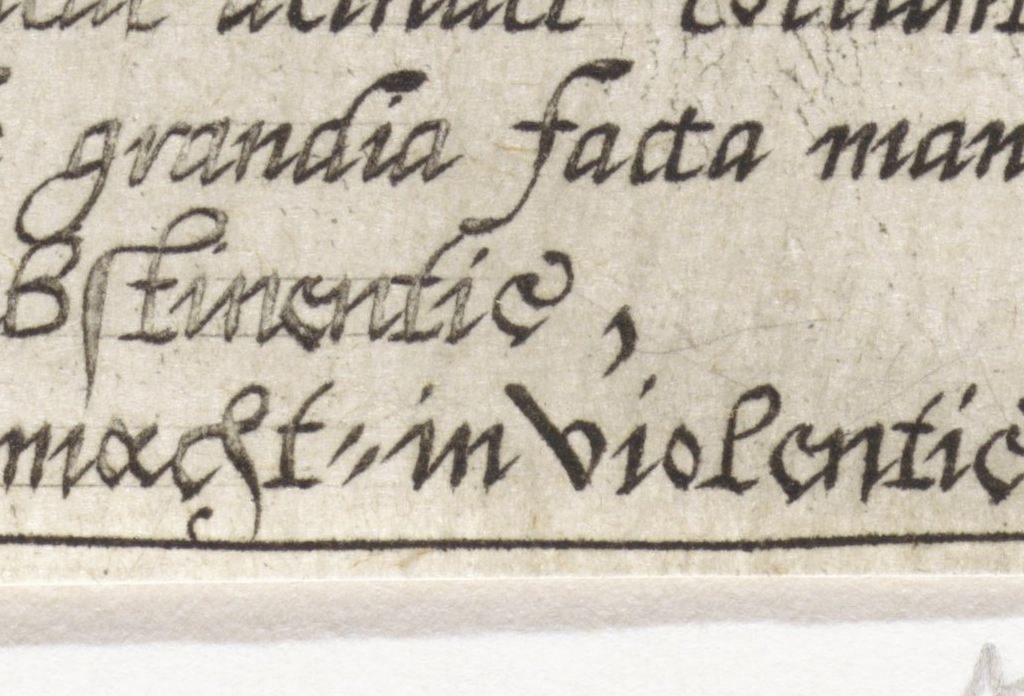 grandia facta man
Bſtinentie,
macht in violentie